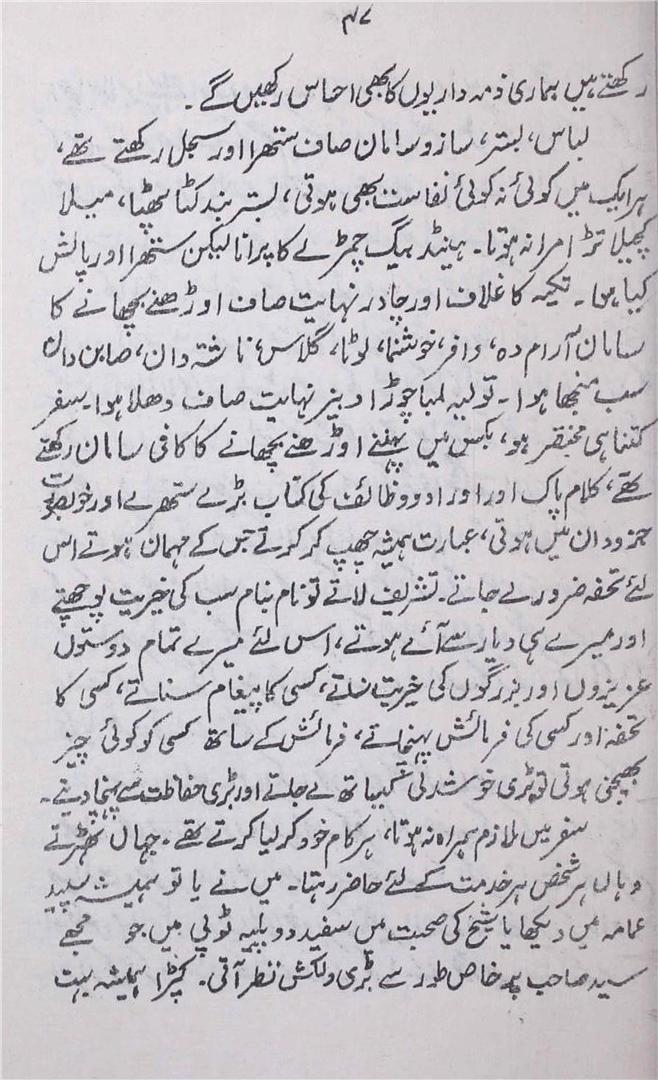 ۴۷
رکھتے ہیں ہماری ذمہ داریوں کا بھی احساس رکھیں گے۔
لباس، بستر، ساز و سامان صاف ستھرا اور سجل رکھتے تھے،
ہر ایک میں کوئی نہ کوئی نفاست بھی ہوتی، بستر بند کٹا پھٹا، میلا
کچیلا تڑا مڑا نہ ہوتا۔ ہینڈ بیگ چمڑے کا پرانا لیکن ستھرا اور پالش
کیا ہوا۔ تکیہ کا غلاف اور چادر نہایت صاف اوڑھنے بچھانے کا
سامان آرام دہ، وافر، خوشنما، لوٹا، گلاس، ناشتہ دان، صابن دان
سب منجھا ہوا۔ تولیہ لمبا چوڑا دبیز نہایت صاف دھلا ہوا۔ سفر
کتنا ہی مختصر ہو، بکس میں پہننے اوڑھنے بچھانے کا کافی سامان رکھتے
تھے، کلام پاک اور اوراد و وظائف کی کتاب بڑے ستھرے اور خوبصورت
جزودان میں ہوتی، عبارت ہمیشہ چھپ کر کرتے جس کے مہمان ہوتے اس
لئے تحفہ ضرور لے جاتے۔ تشریف لاتے تو نام بنام سب کی خیریت پوچھتے
اور میرے ہی دیار سے آئے ہوتے، اس لئے میرے تمام دوستوں
عزیزوں اور بزرگوں کی خیریت بتاتے، کسی کا پیغام سناتے، کسی کا
تحفہ اور کسی کی فرمائش پہنچاتے، فرمائش کے ساتھ کسی کو کوئی چیز
بھیجنی ہوتی تو بڑی خوشدلی کیساتھ لے جاتے اور بڑی حفاظت سے پہنچا دیتے۔
سفر میں ملازم ہمراہ نہ ہوتا، ہر کام خود کر لیا کرتے تھے۔ جہاں ٹھہرتے
وہاں ہر شخص ہر خدمت کے لئے حاضر رہتا۔ میں نے یا تو ہمیشہ سپید
عمامہ میں دیکھا یا شیخ کی صحبت میں سفید دوپلیہ ٹوپی میں جو مجھے
سید صاحب پر خاص طور سے بڑی دلکش نظر آتی۔ کپڑا ہمیشہ بہت